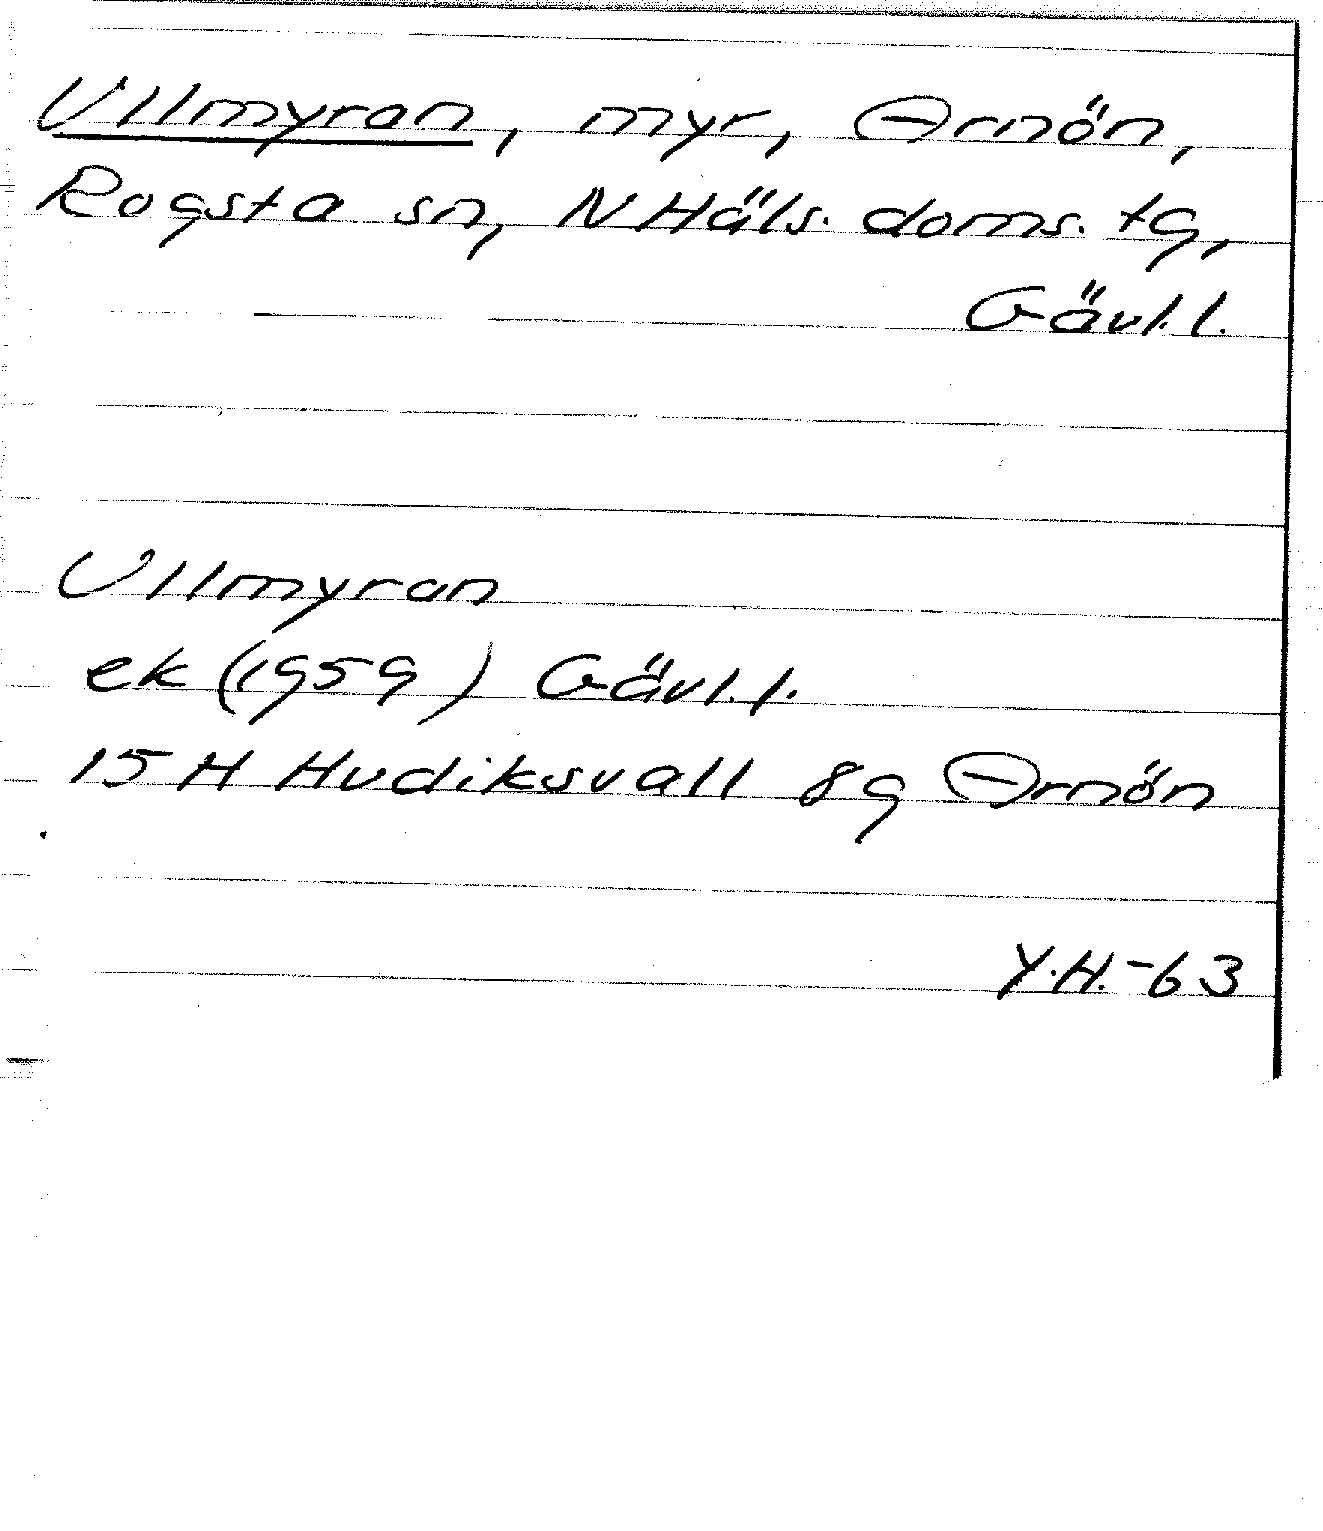 Ullmyran, myr, Arnön,
Rogsta sn, N Häls. doms. tg,
Gävl.l.
Ullmyran
ek (1959) Gävl.l.
15 H Hudiksvall 8g Arnön
Y.H.-63